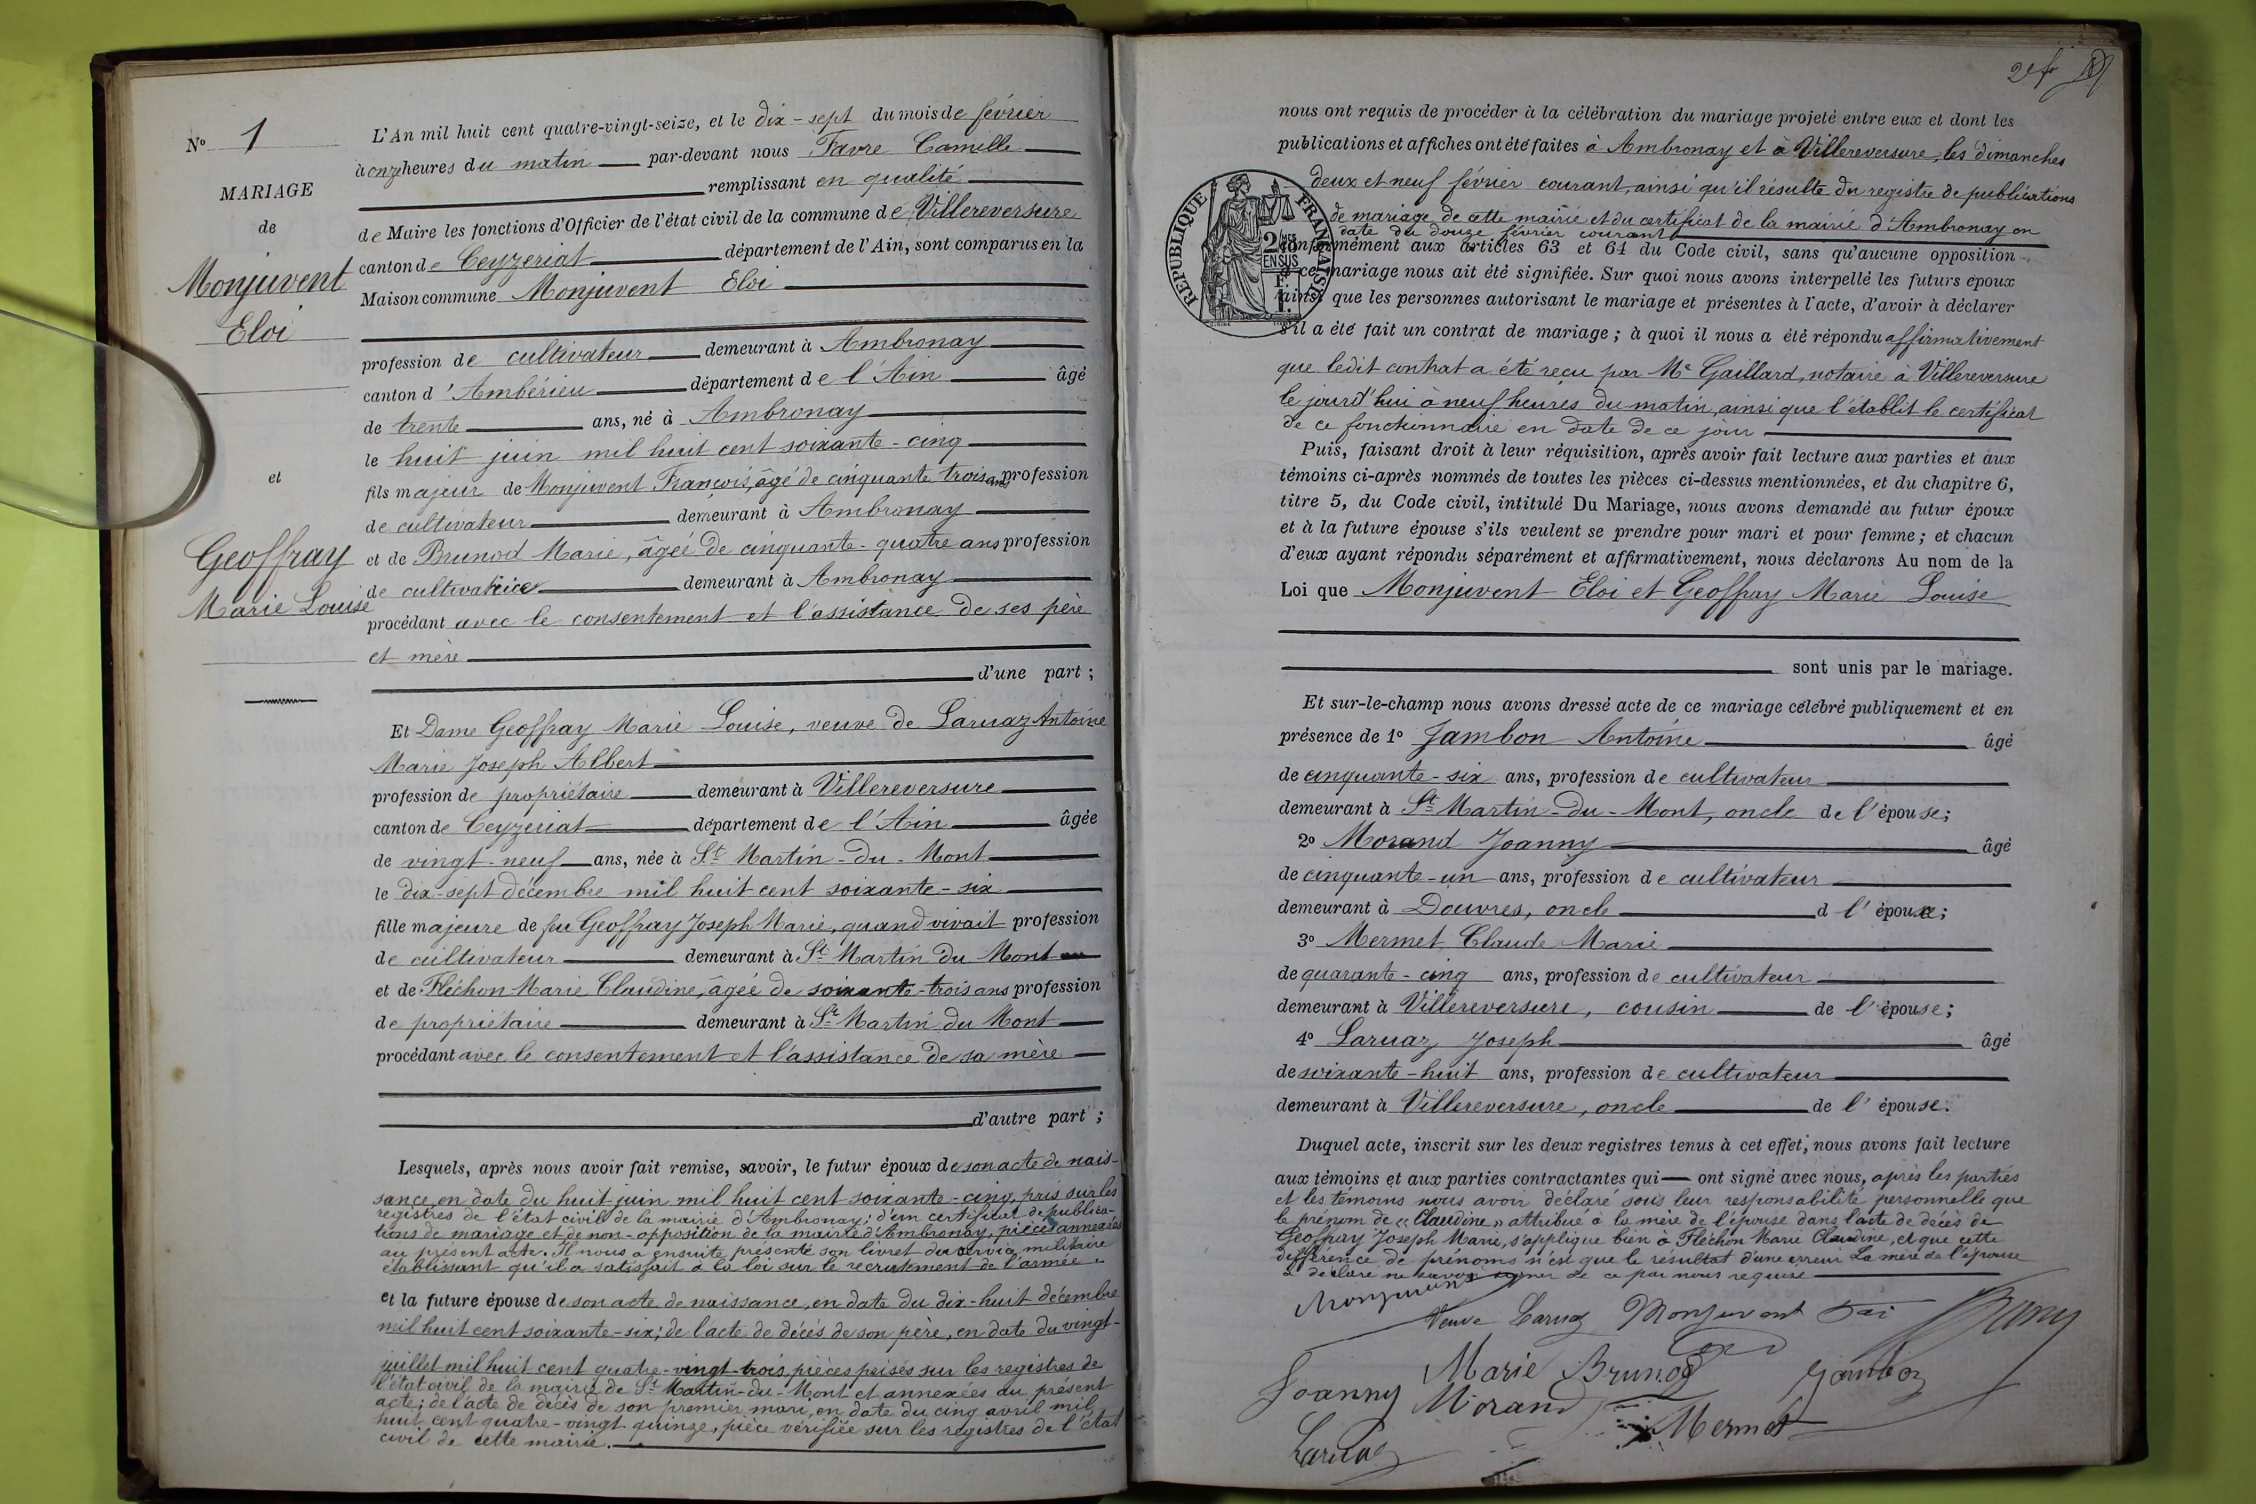 N° 1
MARIAGE
de
Monjuvent
Eloi
et
Geoffray
Marie Louise
L'An mil huit cent quatre-vingt-seize, et le dix-sept du mois de février
à onze heures du matin par-devant nous Favre Camille
remplissant en qualité
de Maire les fonctions d'Officier de l'état civil de la commune de Villereversure
canton de Ceyzeriat département de l'Ain, sont comparus en la
Maison commune Monjuvent Eloi
profession de cultivateur demeurant à Ambronay
canton d'Ambérieu département de l'Ain âgé
de trente ans, né à Ambronay
le huit juin mil huit cent soixante-cinq
fils majeur de Monjuvent François, âgé de cinquante trois ans profession
de cultivateur demeurant à Ambronay
et de Brunod Marie, âgée de cinquante-quatre ans profession
de cultivatrice demeurant à Ambronay
procédant avec le consentement et l'assistance de ses père
et mère
d'une part ;
Et Dame Geoffray Marie Louise, veuve de Laruaz Antoine
Marie Joseph Albert
profession de propriétaire demeurant à Villereversure
canton de Ceyzeriat département de l'Ain âgée
de vingt-neuf ans, née à St Martin-du-Mont
le dix-sept décembre mil huit cent soixante-six
fille majeure de feu Geoffray Joseph Marie, quand vivait profession
de cultivateur demeurant à St Martin du Mont
et de Fléchon Marie Claudine, âgée de soixante-trois ans profession
de propriétaire demeurant à St Martin du Mont
procédant avec le consentement et l'assistance de sa mère
d'autre part ;
Lesquels, après nous avoir fait remise, savoir, le futur époux de son acte de nais-
sance, en date du huit juin mil huit cent soixante-cinq, pris sur les
registres de l'état civil de la mairie d'Ambronay; d'un certificat de publica-
tions de mariage et de non-opposition de la mairie d'Ambronay, pièces annexées
au présent acte. Il nous a ensuite présenté son livret du service militaire
établissant qu'il a satisfait à la loi sur le recrutement de l'armée.
et la future épouse de son acte de naissance, en date du dix-huit décembre
mil huit cent soixante-six; de l'acte de décès de son père, en date du vingt-
juillet mil huit cent quatre-vingt-trois, pièces prises sur les registres de
l'état civil de la mairie de St Martin-du-Mont et annexées au présent
acte; de l'acte de décès de son premier mari, en date du cinq avril mil
huit cent quatre-vingt quinze, pièce vérifiée sur les registres de l'état
civil de cette mairie.
nous ont requis de procéder à la célébration du mariage projeté entre eux et dont les
publications et affiches ont été faites à Ambronay et à Villereversure, les dimanches
deux et neuf février courant, ainsi qu'il résulte du registre de publications
de mariage de cette mairie et du certificat de la mairie d'Ambronay en
date du douze février courant
conformément aux articles 63 et 64 du Code civil, sans qu'aucune opposition
à ce mariage nous ait été signifiée. Sur quoi nous avons interpellé les futurs époux
ainsi que les personnes autorisant le mariage et présentes à l'acte, d'avoir à déclarer
s'il a été fait un contrat de mariage ; à quoi il nous a été répondu affirmativement
que ledit contrat a été reçu par Me Gaillard, notaire à Villereversure
le jourd'hui à neuf heures du matin, ainsi que l'établit le certificat
de ce fonctionnaire en date de ce jour
RÉPUBLIQUE FRANÇAISE
2/10es
EN SUS
Puis, faisant droit à leur réquisition, après avoir fait lecture aux parties et aux
témoins ci-après nommés de toutes les pièces ci-dessus mentionnées, et du chapitre 6,
titre 5, du Code civil, intitulé Du Mariage, nous avons demandé au futur époux
et à la future épouse s'ils veulent se prendre pour mari et pour femme ; et chacun
d'eux ayant répondu séparément et affirmativement, nous déclarons Au nom de la
Loi que Monjuvent Eloi et Geoffray Marie Louise
sont unis par le mariage.
Et sur-le-champ nous avons dressé acte de ce mariage célébré publiquement et en
présence de 1° Jambon Antoine âgé
de cinquante-six ans, profession de cultivateur
demeurant à St Martin-du-Mont, oncle de l'épouse;
2° Morand Joanny âgé
de cinquante-un ans, profession de cultivateur
demeurant à Douvres, oncle d l'époux;
3° Mermet Claude Marie
de quarante-cinq ans, profession de cultivateur
demeurant à Villereversure, cousin de l'épouse;
4° Laruaz Joseph âgé
de soixante-huit ans, profession de cultivateur
demeurant à Villereversure, oncle de l'épouse.
Duquel acte, inscrit sur les deux registres tenus à cet effet, nous avons fait lecture
aux témoins et aux parties contractantes qui ont signé avec nous, après les parties
et les témoins nous avoir déclaré sous leur responsabilité personnelle que
le prénom de "Claudine" attribué à la mère de l'épouse dans l'acte de décès de
Geoffray Joseph Marie, s'applique bien à Fléchon Marie Claudine, et que cette
différence de prénoms n'est que le résultat d'une erreur La mère de l'épouse
a déclaré ne savoir signer de ce par nous requise
Monjuvent
Veuve Laruaz Monjuvent
Marie Brunod Jambon
Joanny Morand
Mermet
Laruaz